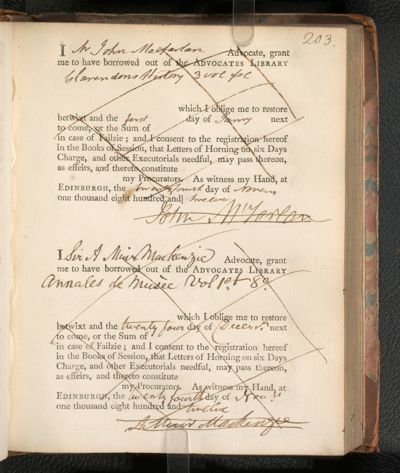 203.
I Mr John Macfarlan Advocate, grant
me to have borrowed out of the ADVOCATES LIBRARY
Clarendons History 3 vol
which I oblige me to restore
betwixt and the first day of next
to come, or the Sum of
in case of Failzie; and I consent to the registration hereof
in the Books of Session, that Letters of Horning on six Days
Charge, and other Executorials needful, may pass thereon,
as effeirs, and thereto constitute
my Procurators. As witness my Hand, at
EDINBURGH, the twenty fourth day of
one thousand eight hundred and twelve
John
I Sir A Muir Mackenzie Advocate, grant
me to have borrowed out of the ADVOCATES LIBRARY
Annales de Musée Vol 1st 8o
which I oblige me to restore
betwixt and the twenty four day of Decemr. next
to come, or the Sum of
in case of Failzie; and I consent to the registration hereof
in the Books of Session, that Letters of Horning on six Days
Charge, and other Executorials needful, may pass thereon,
as effeirs, and thereto constitute
my Procurators. As witness my Hand, at
EDINBURGH, the twenty fourth day of Novr.
one thousand eight hundred and twelve
A Muir Mackenzie